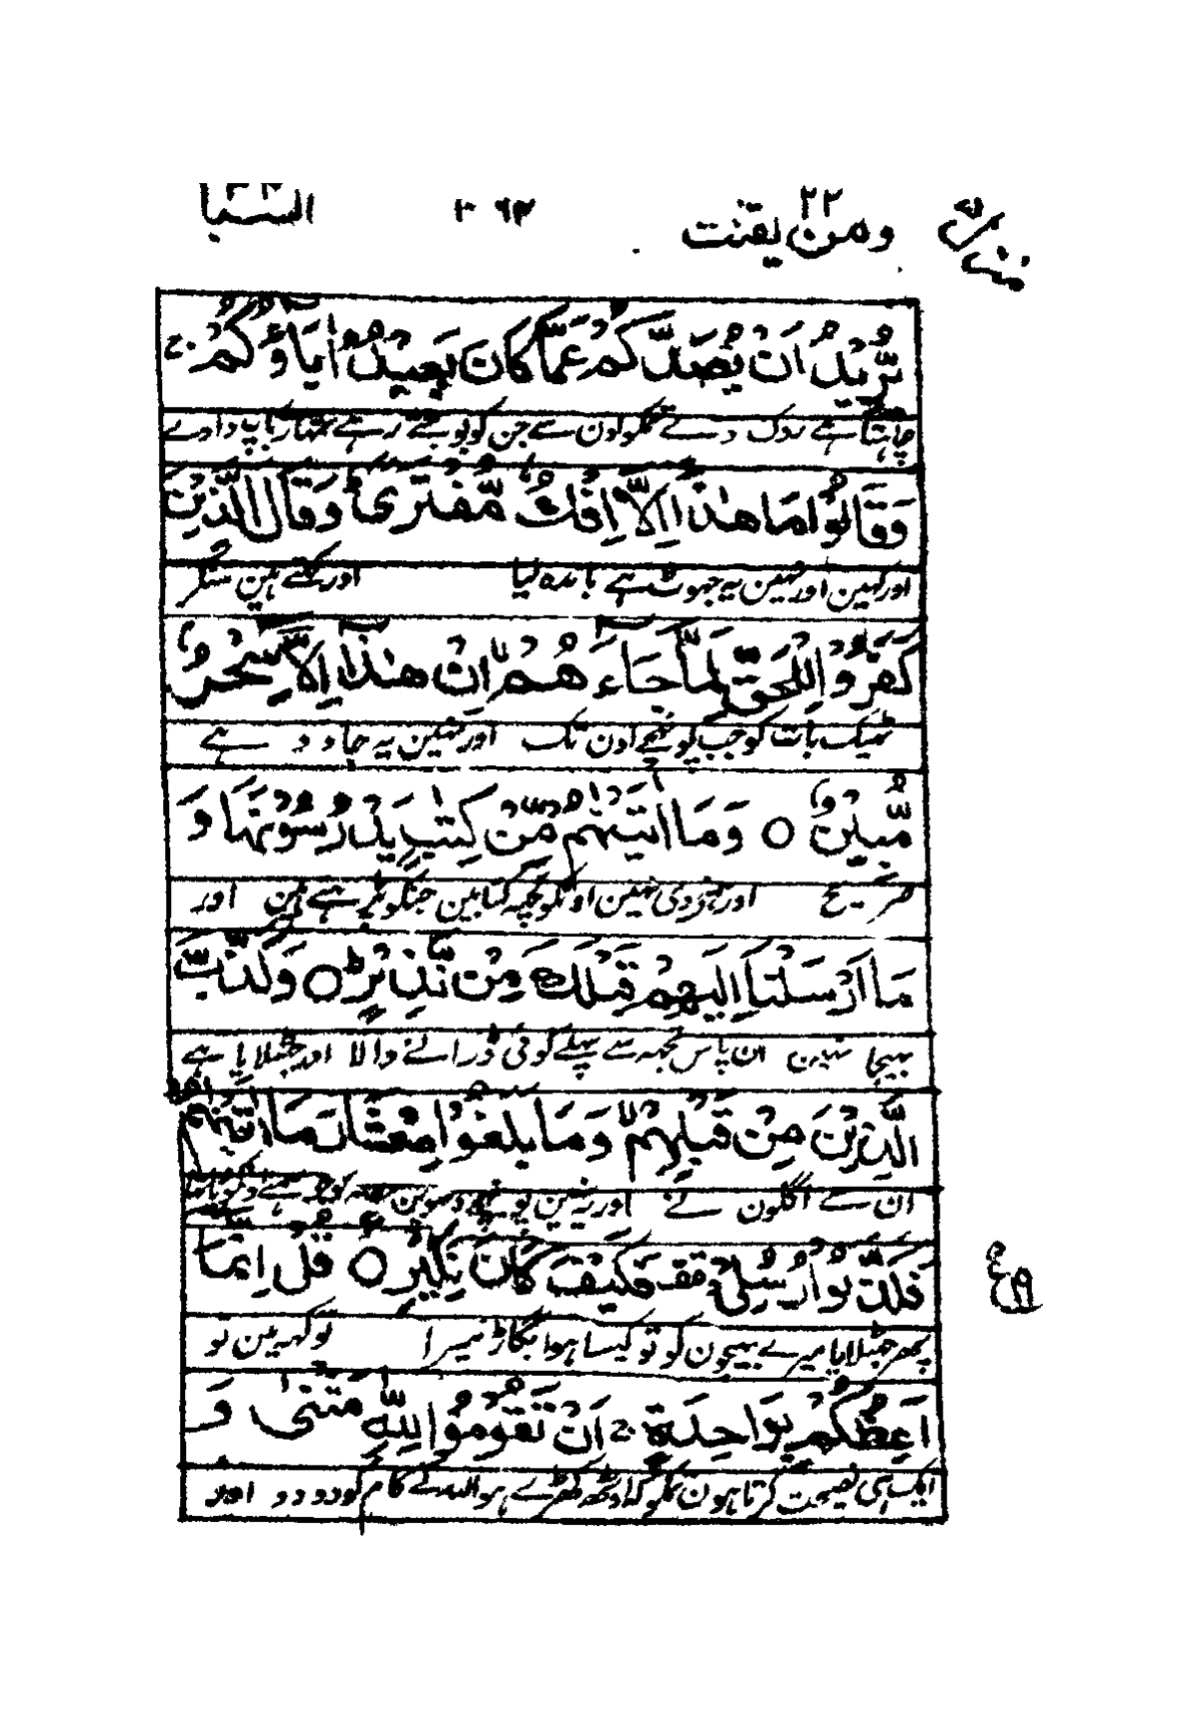 السبا ٣٤ ومن یقنت ٢٢
یُّرِیْدُ اَنْ یَّصُدَّكُمْ عَمَّا كَانَ یَعْبُدُ اٰبَآؤُكُمْ ۚ
چاہتا ہے روک دے تمکو اون سے جن کو پوجتے رہے تمہارے باپ دادے
وَقَالُوْا مَا هٰذَاۤ اِلَّاۤ اِفْكٌ مُّفْتَرًی ؕ وَقَالَ الَّذِیْنَ
اور کہین اور نہین یہ جہوٹ ہے باندہ لیا اور کہتے ہین منکر
كَفَرُوْا لِلْحَقِّ لَمَّا جَآءَهُمْ ۙ اِنْ هٰذَاۤ اِلَّا سِحْرٌ
ٹہیک بات کو جب پہنچے اون تک اور نہین یہ جادو ہے
مُّبِیْنٌ ○ وَمَاۤ اٰتَیْنٰهُمْ مِّنْ كِتٰبٍ یَّدْرُسُوْنَهَا وَ
صریح اور ہم نے دی نہین اونکو کچہہ کتابین جنکو پڑہتے ہین اور
مَاۤ اَرْسَلْنَاۤ اِلَیْهِمْ قَبْلَكَ مِنْ نَّذِیْرٍ ؕ○ وَكَذَّبَ
بہیجا نہین ان پاس تجہہ سے پہلے کوئی ڈرانے والا اور جہٹلایا ہے
الَّذِیْنَ مِنْ قَبْلِهِمْ ۙ وَمَا بَلَغُوْا مِعْشَارَ مَاۤ اٰتَیْنٰهُمْ
ان سے اگلون نے اور یہ نہین پہنچے دسوین
فَكَذَّبُوْا رُسُلِیْ ۫ قف فَكَیْفَ كَانَ نَكِیْرِ ○ قُلْ اِنَّمَاۤ
پھر جہٹلایا میرے بہیجون کو تو کیسا ہوا بگاڑ میرا تو کہہ مین تو
اَعِظُكُمْ بِوَاحِدَةٍ ۚ اَنْ تَقُوْمُوْا لِلّٰهِ مَثْنٰی وَ
ایک ہی نصیحت کرتا ہون تمکو کہ اوٹھ کھڑے ہو اللہ کے کام کو دو دو اور